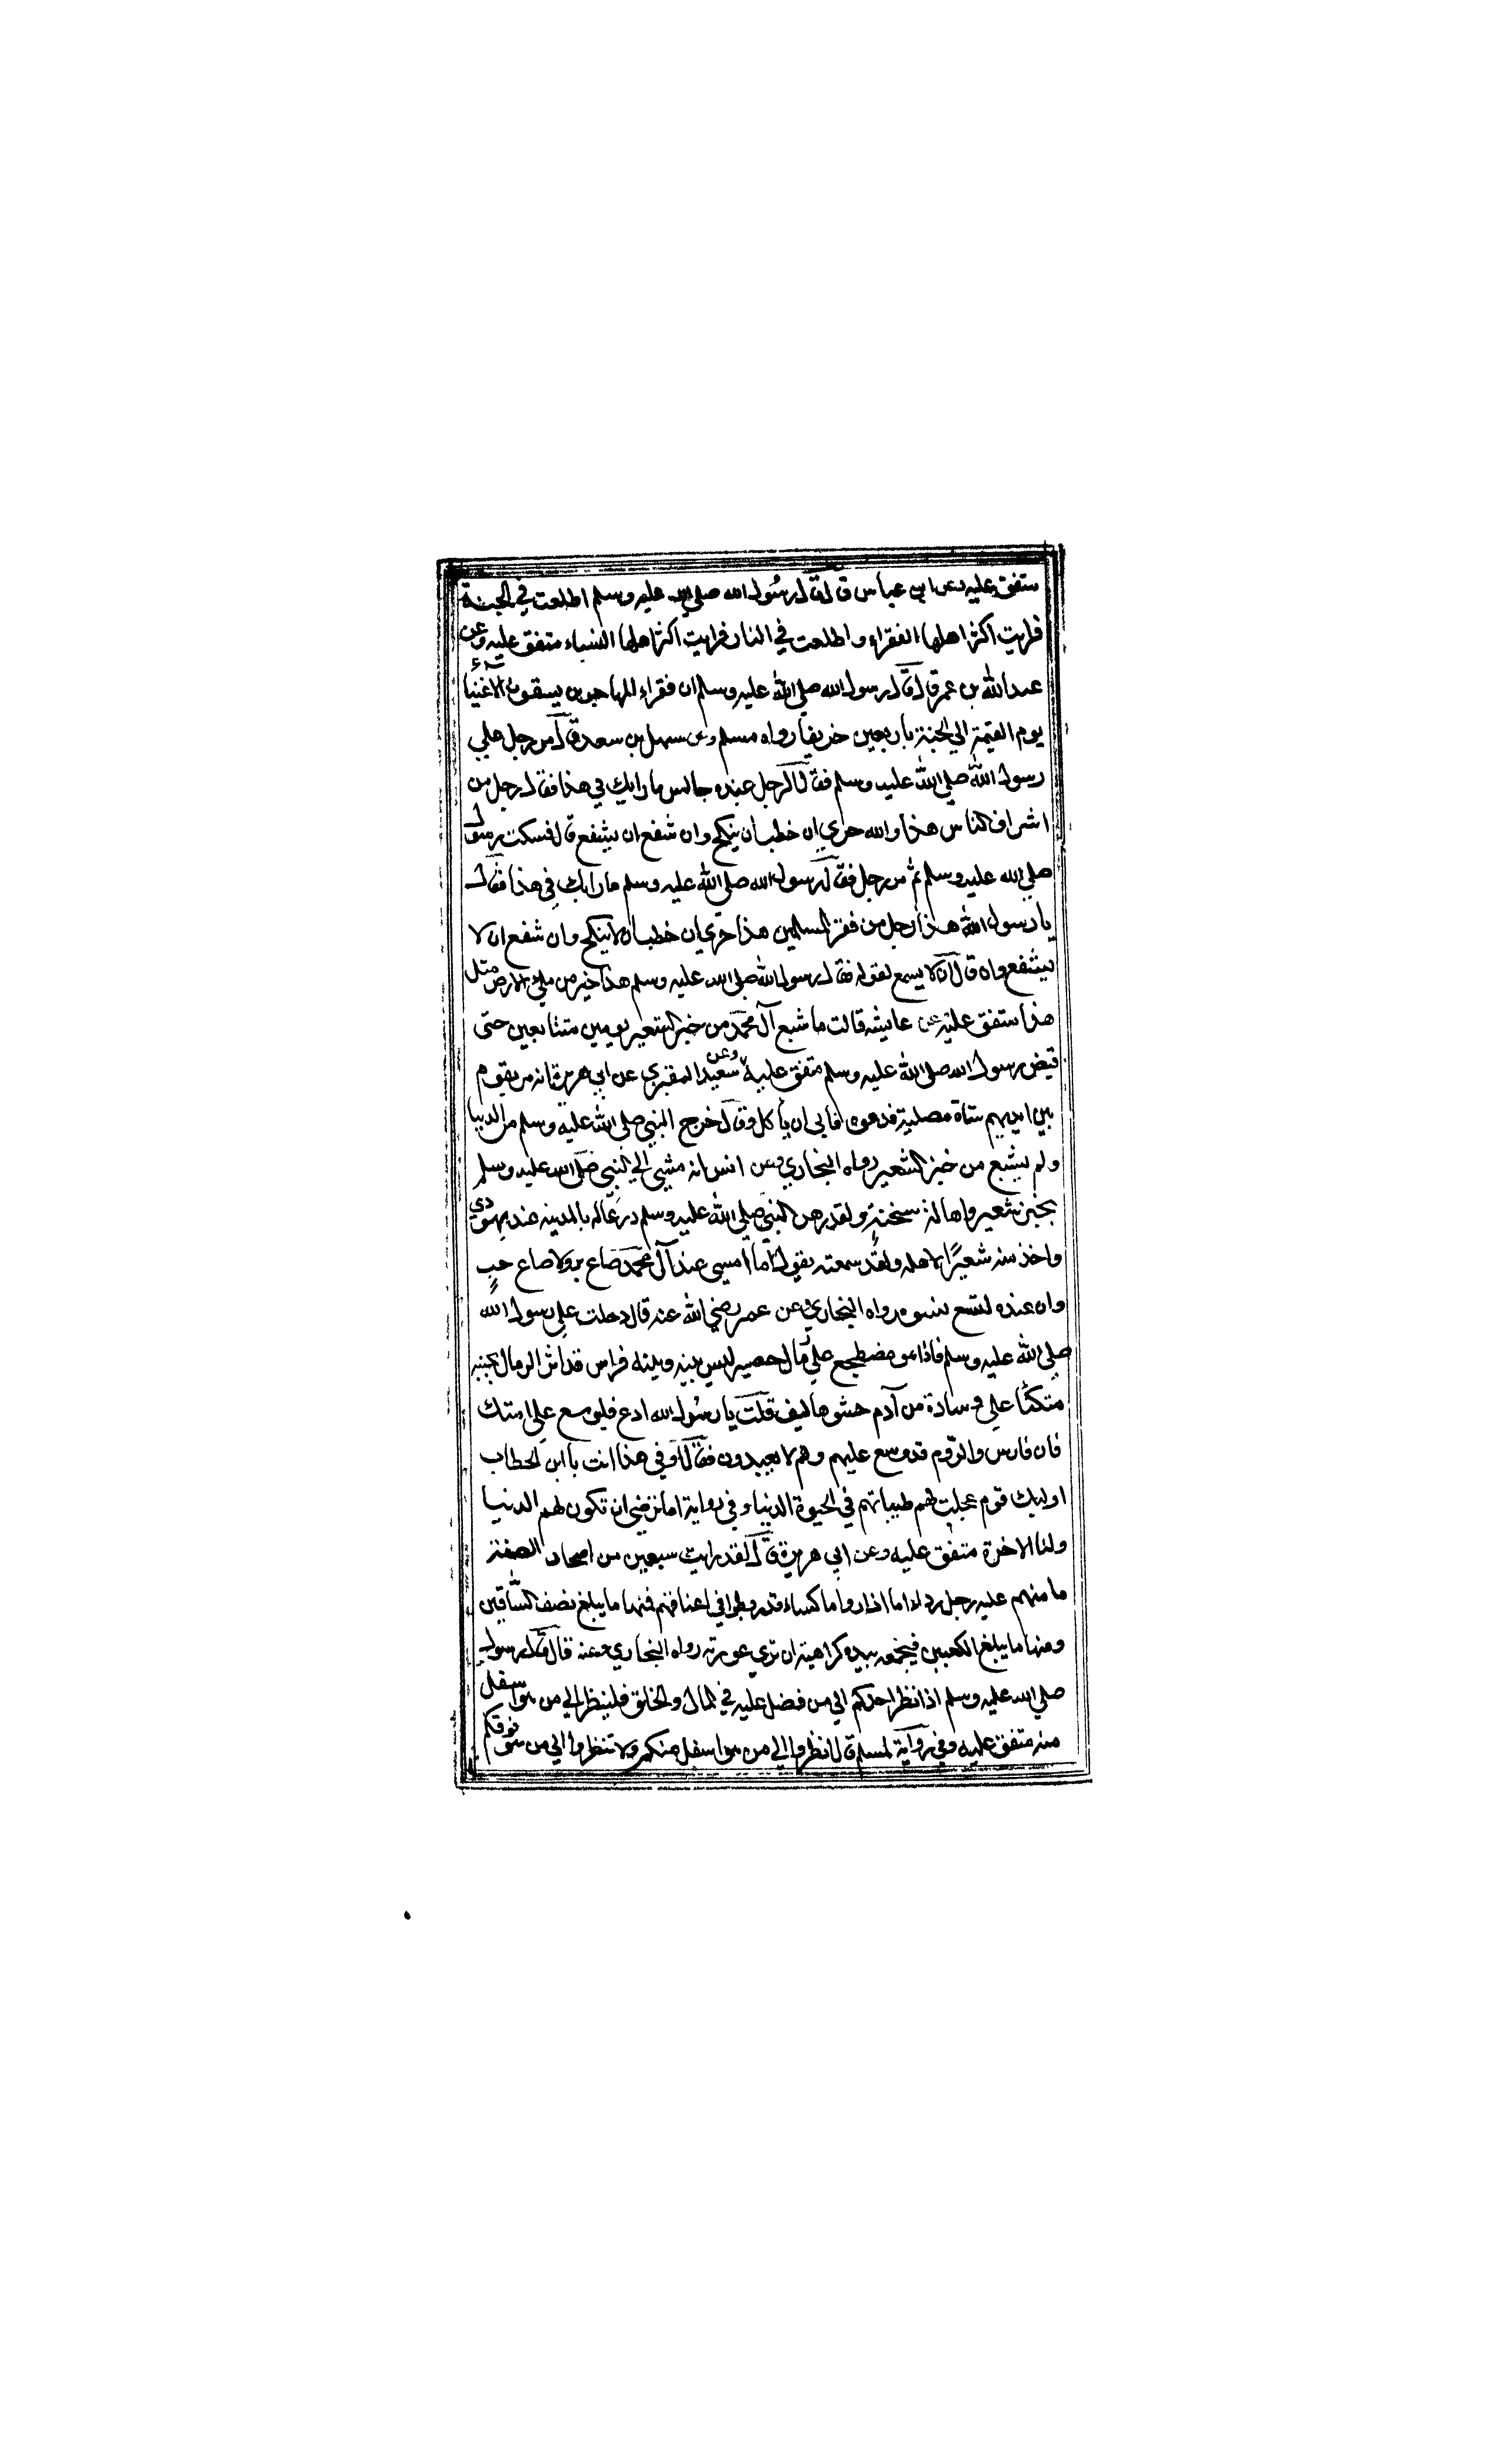 متفق عليه وعن ابن عباس قال قال رسول الله صلي الله عليه وسلم اطلعت في الجنة
فرايت اكثر اهلها الفقراء واطلعت في النار فرايت اكثر اهلها النساء متفق عليه وعن
عبد الله بن عمر قال قال رسول الله صلي الله عليه وسلم ان فقراء المهاجرين يسبقون الاغنياء
يوم القيمة الي الجنة باربعين خريفا رواه مسلم وعن سهل بن سعد قال مر رجل علي
رسول الله صلي الله عليه وسلم فقال لرجل عنده جالس ما رايك في هذا فقال رجل من
اشراف الناس هذا والله حري ان خطب ان ينكح وان شفع ان يشفع قال فسكت رسول
صلي الله عليه وسلم ثم مر رجل فقال رسول الله صلي الله عليه وسلم ما رايك في هذا فقال
يا رسول الله هذا رجل من فقراء المسلمين هذا حري ان خطب ان لا ينكح وان شفع ان لا
يشفع وان قال ان لا يسمع لقوله فقال رسول الله صلي الله عليه وسلم هذا خير من ملئ الارض مثل
هذا متفق عليه عن عايشه قالت ما شبع آل محمد من خبز الشعير يومين متتابعين حتى
قبض رسول الله صلي الله عليه وسلم متفق عليه وعن سعيد المقبري عن ابي هريرة انه مر بقوم
بين ايديهم شاة مصلية فدعوه فابى ان يأكل وقال خرج النبي صلي الله عليه وسلم من الدنيا
ولم يشبع من خبز الشعير رواه البخاري وعن انس انه مشي الي النبي صلي الله عليه وسلم
بخبز شعير واهالة سنخة ولقد رهن النبي صلي الله عليه وسلم درعا له بالمدينه عند يهودي
واخذ منه شعيرًا لاهله ولقد سمعته يقول ما امسى عند آل محمد صاع بر ولا صاع حب
وان عنده لتسع نسوه رواه البخاري وعن عمر رضي الله عنه قال دخلت علي رسول الله
صلي الله عليه وسلم فاذا هو مضطجع علي رمال حصير ليس بينه وبينه فراس قد اثر الرمال بجنبه
متكئا علي وسادة من آدم حشوها ليف قلت يا رسول الله ادع فليوسع علي امتك
فان فارس والروم قد وسع عليهم وهم لا يعبدون فقال اوفي هذا انت يا ابن الخطاب
اوليك قوم عجلت لهم طيباتهم في الحيوة الدنيا وفي رواية اما ترضي ان تكون لهم الدنيا
ولنا الاخرة متفق عليه وعن ابي هريرة قال لقد رايت سبعين من اصحاب الصفة
ما منهم عليه رجل رداء اما ازار واما كساء قد ربطوا في اعناقهم فمنها ما يبلغ نصف الساقين
ومنها ما يبلغ الكعبين فيجمعه بيده كراهية ان تري عورته رواه البخاري وعنه قال قال رسول
صلي الله عليه وسلم اذا نظر احدكم الي من فضل عليه في المال والخلق فلينظر الي من هو اسفل
منه متفق عليه وفي رواية لمسلم قال انظروا الي من هو اسفل منكم ولا تنظروا الي من هو فوقكم